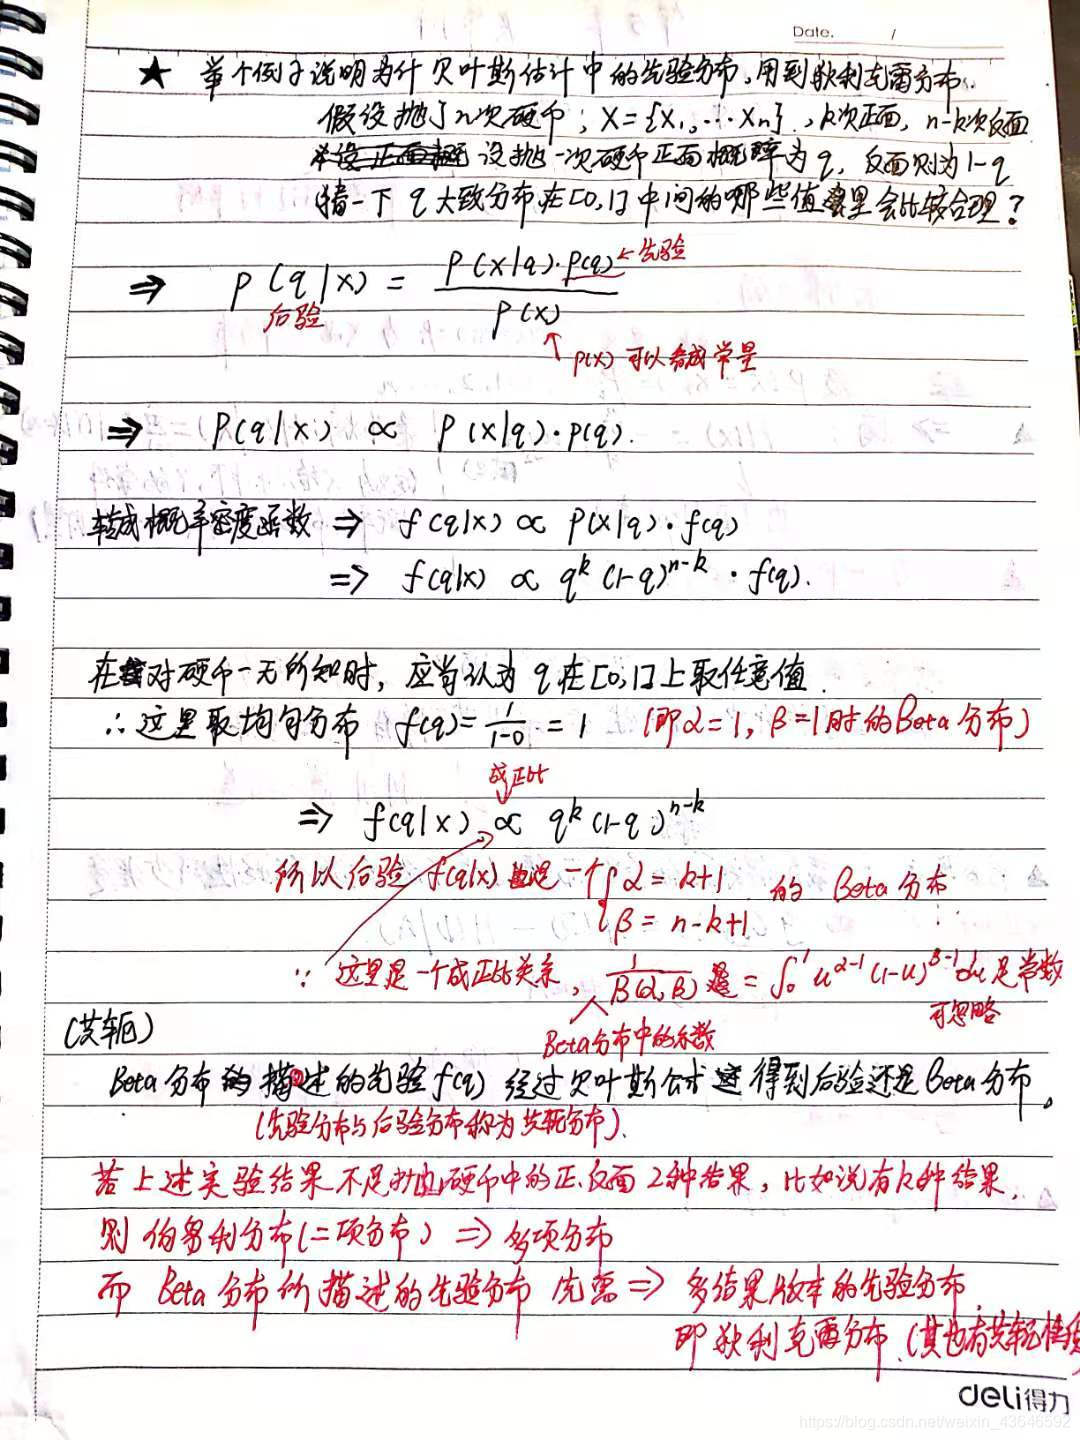 Date. /
★ 举个例子说明为什 贝叶斯估计中的先验分布,用到狄利克雷分布.
假设抛了n次硬币; X={X₁,···Xn}., k次正面, n-k次反面
设抛一次硬币正面概率为q, 反面则为1-q
猜一下 q 大致分布在[0,1]中间的哪些值里会比较合理?
⇒ P(q|X) = P(X|q)·P(q) / P(X) ←先验
后验
↑ P(X) 可以看成常量
⇒ P(q|X) ∝ P(X|q)·P(q).
转成概率密度函数 ⇒ f(q|X) ∝ P(X|q)·f(q)
⇒ f(q|X) ∝ q^k (1-q)^{n-k} · f(q).
在对硬币一无所知时, 应当认为 q 在[0,1]上取任意值.
∴ 这里取均匀分布 f(q)= 1/(1-0) = 1 (即α=1, β=1时的Beta分布)
成正比
⇒ f(q|X) ∝ q^k (1-q)^{n-k}
所以后验 f(q|X) 是一个{α=k+1 的 Beta分布
β=n-k+1
∵ 这里是一个成正比关系, 1/B(α,β) 是 = ∫₀¹ u^{α-1} (1-u)^{β-1} du 是常数
可忽略
Beta分布中的系数
(共轭)
Beta分布 描述的先验f(q) 经过贝叶斯公式 得到后验还是Beta分布。
(先验分布与后验分布称为共轭分布).
若上述实验结果不是抛硬币中的正.反面2种结果, 比如说有k种结果,
则 伯努利分布(二项分布) ⇒ 多项分布
而 Beta分布所描述的先验分布 ⇒ 多结果版本的先验分布
即狄利克雷分布.(其也有共轭
deli得力
https://blog.csdn.net/weixin_43646592